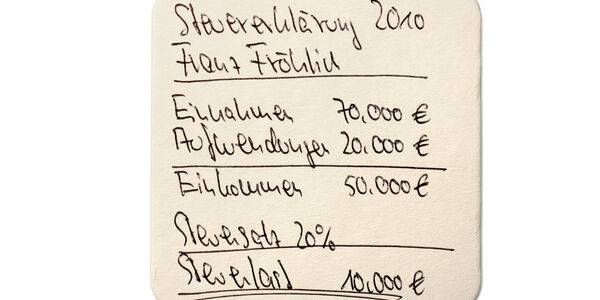 Steuererklärung 2010
Franz Fröhlich
Einnahmen 70.000 €
Aufwendungen 20.000 €
Einkommen 50.000 €
Steuersatz 20%
Steuerlast 10.000 €